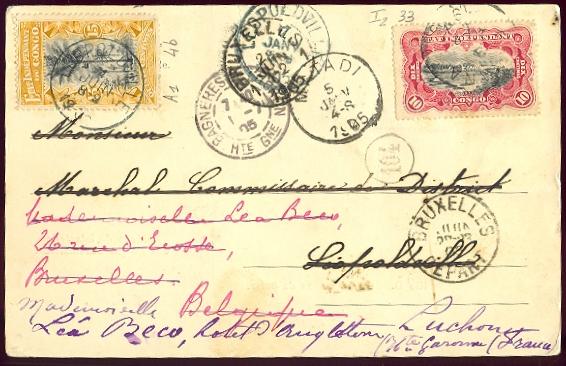 I2 33
15
ÉTAT INDÉPENDANT
DU CONGO
A1 46
BRUXELLES
1905
LÉOPOLDVILLE
MATADI
5
JANV
4-S
1905
DIX
DIX
10
CONGO
10
BAGNÈRES
05
Hte GNE
104
Monsieur
Marchal Commissaire de District
Mademoiselle Léa Beco,
26 rue d'Ecosse,
Léopoldville
BRUXELLES
DEPART
Bruxelles
Belgique
Mademoiselle
Léa Beco, hotel d'Angleterre, Luchon
(Hte Garonne) (France)